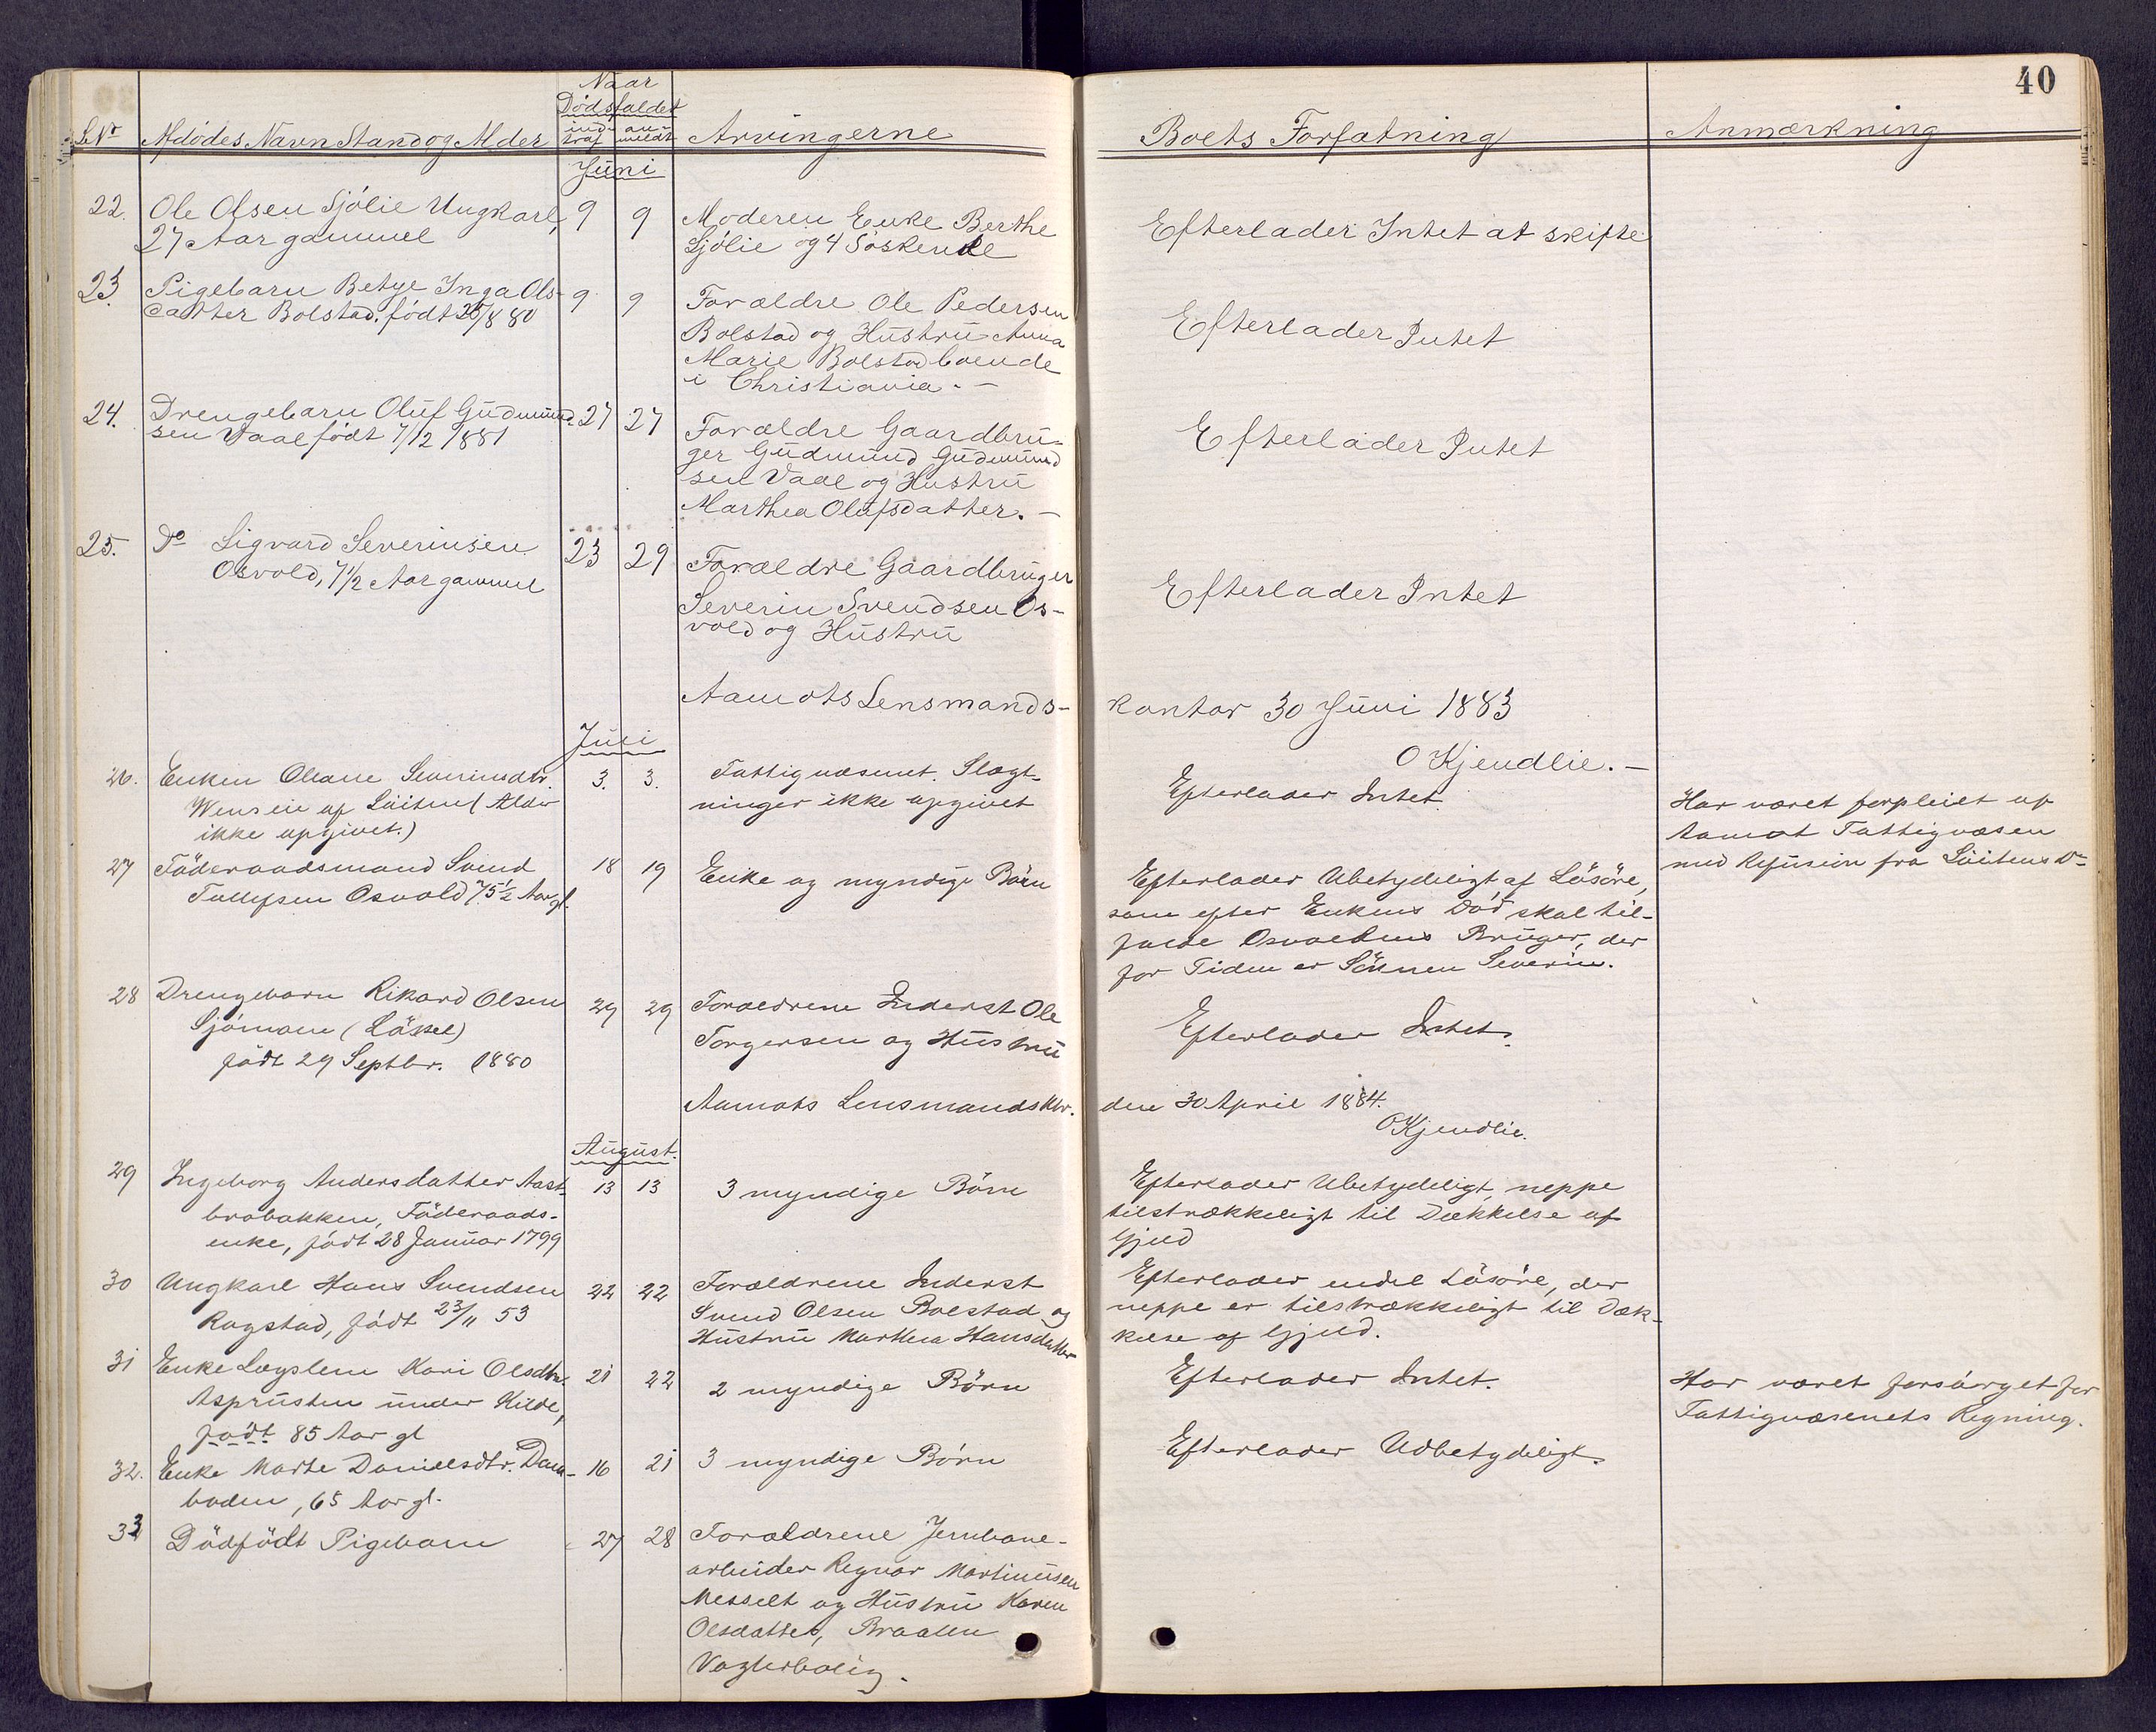 40
Naar
Dødsfaldet
LNr Afdødes Navn Stand og Alder ind- traf an- meldt Arvingerne Boets Forfatning Anmærkning
Juni
22. Ole Olsen Sjölie Ungkarl, 9 9 Moderen Enke Berthe Efterlader Intet at skifte
27 Aar gammel Sjölie og 4 Söskende
23. Pigebarn Betye Inga Ols- 9 9 Forældre Ole Pedersen Efterlader Intet
datter Bolstad, født 25/8 80 Bolstad og Hustru Anna
Marie Bolstad boende
i Christiania. -
24. Drengebarn Oluf Gudmund- 27 27 Forældre Gaardbru- Efterlader Intet
sen Vaal født 7/12 1881 ger Gudmund Gudmund
sen Vaal og Hustru
Marthea Olufsdatter. -
25. Do Sigvard Severinsen 23 29 Forældre Gaardbruger Efterlader Intet
Osvold, 7 1/2 Aar gammel Severin Svendsen Os-
vold og Hustru
Aamots Lensmands- kontor 30 Juni 1883
O Kjendlie. -
Juli
26. Enken Oleane Severinsdtr. 3. 3. Fattigvæsenet. Slægt- Efterlader Intet Har været forpleiet af
af Löiten (Alder ninger ikke opgivet Aamot Fattigvæsen
ikke opgivet.) med Refusion fra Löitens Do
27 Föderaadsmand Svend 18 19 Enke og myndige Börn Efterlader Ubetydeligt af Lösöre,
Tollefsen Osvold 75 1/2 Aar gl. som efter Enkens Död skal til-
falde Osvoldens Bruger, der
for Tiden er Sönnen Severin.
28 Drengebarn Rikard Olsen 29 29 Forældrene Inderst Ole Efterlader Intet.
Sjömoen (Löset) Torgersen og Hustru
födt 29 Septbr. 1880
Aamots Lensmandsktr. den 30 April 1884.
O Kjendlie.
August.
29 Ingeborg Andersdatter Aast- 13 13 3 myndige Börn Efterlader Ubetydeligt, neppe
brobakken, Föderaads- tilstrækkeligt til Dækkelse af
enke, födt 28 Januar 1799 Gjæld
30 Ungkarl Hans Svendsen 22 22 Forældrene Inderst Efterlader endel Lösöre, der
Rogstad, födt 23/11 53 Svend Olsen Bolstad og neppe er tilstrækkeligt til Dæk-
Hustru Marthea Hansdatter kelse af Gjæld.
31 Enke Lægslem Kari Olsdtr. 21 22 2 myndige Börn Efterlader Intet. Har været forsörget for
Asprusten under Kilde, Fattigvæsenets Regning.
födt 85 Aar gl
32. Enke Marte Danielsdtr. Dam- 16 21 3 myndige Börn Efterlader Udbetydeligt.
boden, 65 Aar gl.
33 Dödfödt Pigebarn 27 28 Forældrene Jernbane-
arbeider Regnar Martinusen
Messelt og Hustru Karen
Olsdatter, Braaten
Vogterbolig.